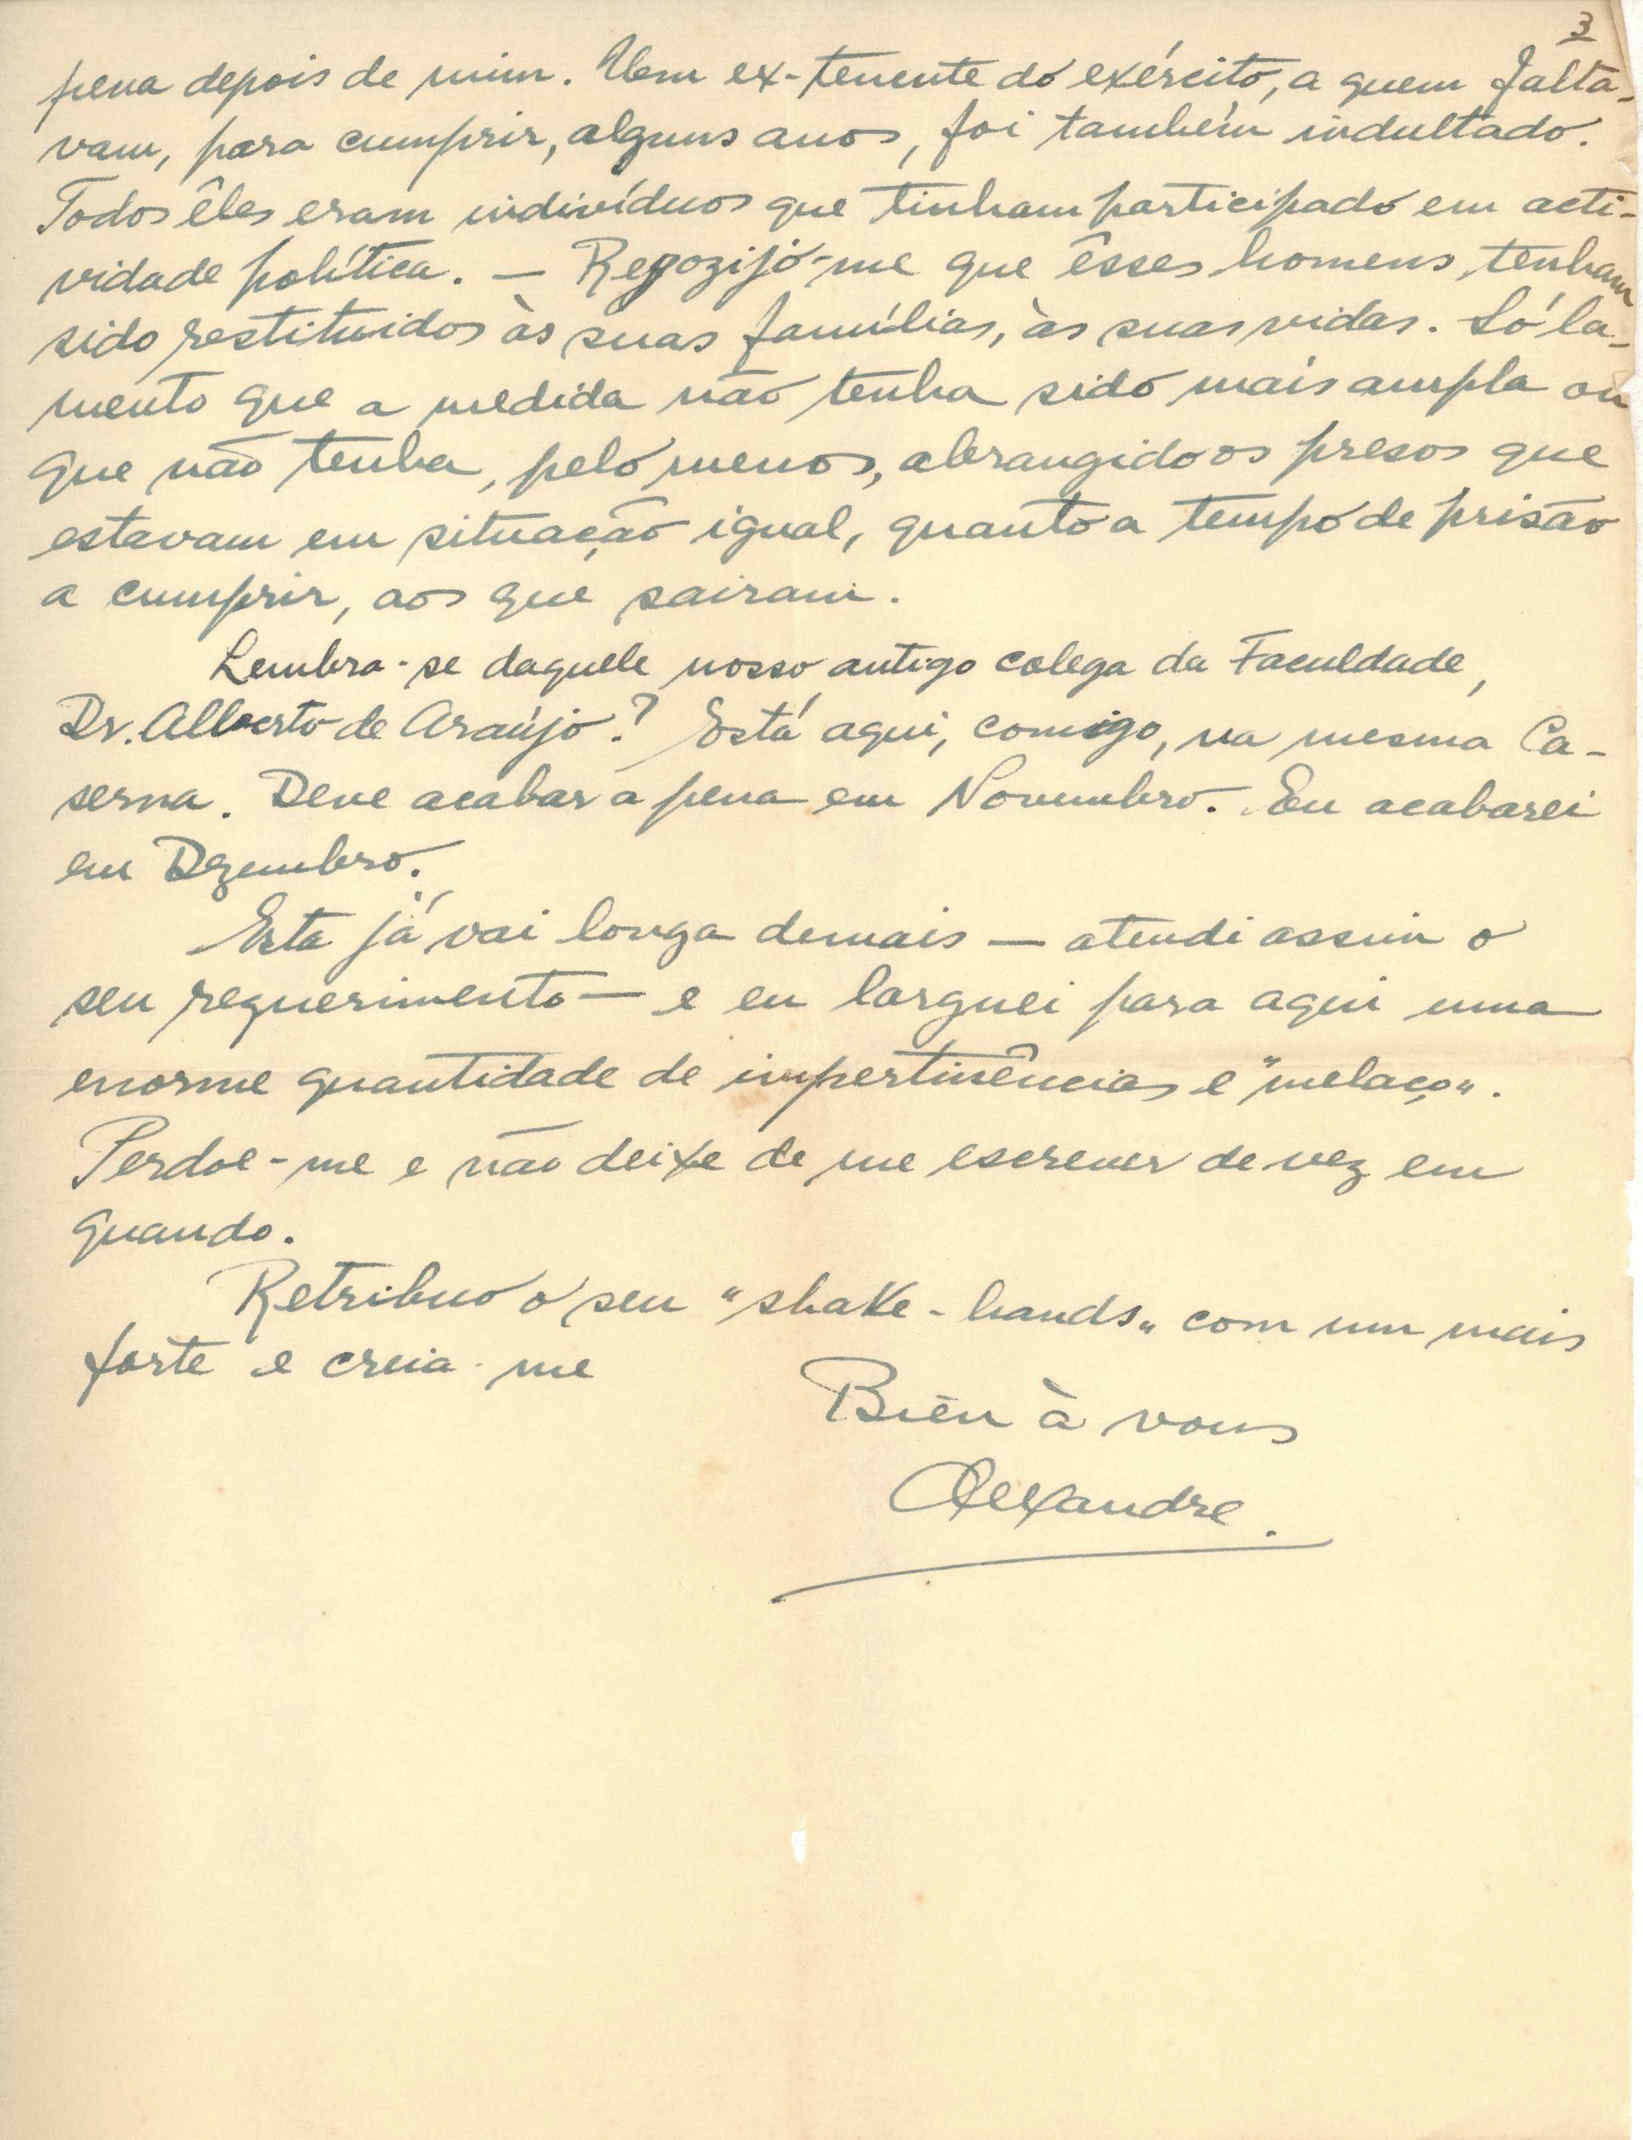 3
pena depois de mim. Um ex-tenente do exército, a quem falta-
vam, para cumprir, alguns anos, foi também indultado.
Todos êles eram indivíduos que tinham participado em acti-
vidade política. — Regozijo-me que êsses homens, tenham
sido restituidos às suas famílias, às suas vidas. Só la-
mento que a medida não tenha sido mais ampla ou
que não tenha, pelo menos, abrangido os presos que
estavam em situação igual, quanto a tempo de prisão
a cumprir, aos que sairam.
Lembra-se daquele nosso antigo colega da Faculdade,
Dr. Alberto de Araújo? Está aqui, comigo, na mesma Ca-
serna. Deve acabar a pena em Novembro. Eu acabarei
em Dezembro.
Esta já vai longa demais — atendi assim o
seu requerimento — e eu larguei para aqui uma
enorme quantidade de impertinências e "melaço".
Perdoe-me e não deixe de me escrever de vez em
quando.
Retribuo o seu "shake-hands" com um mais
forte e creia-me
Bien à vous
Alexandre.